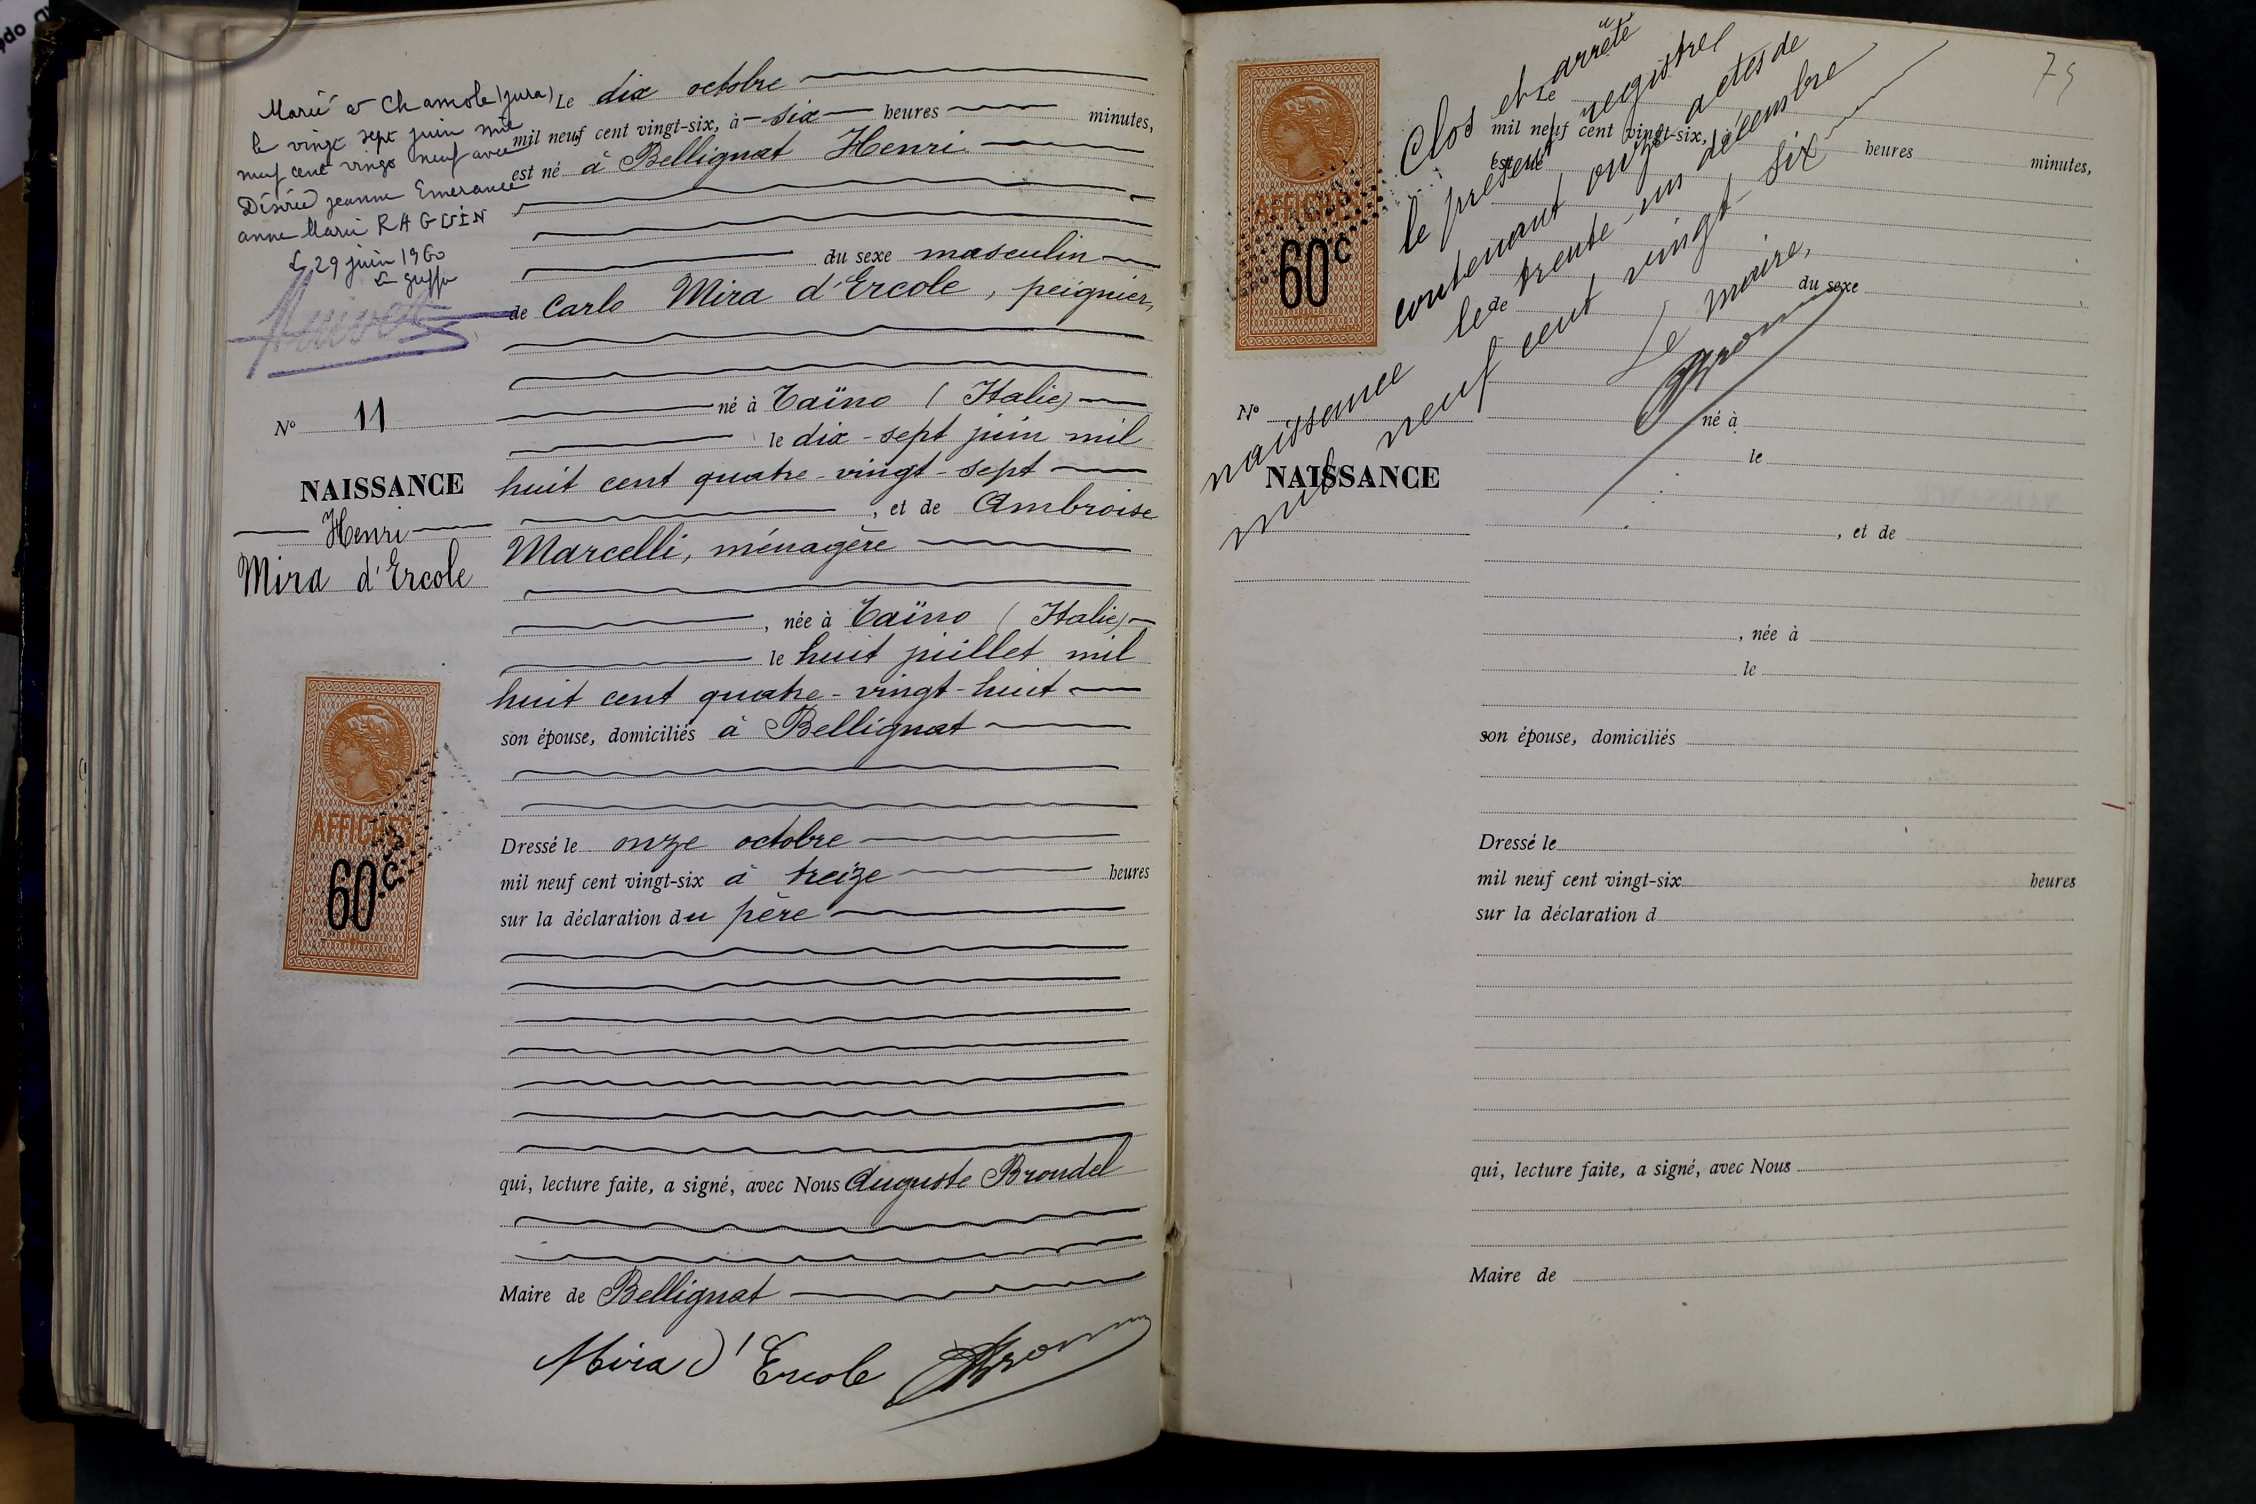 Marié à Chamole (Jura)
le vingt sept juin mil
neuf cent vingt neuf avec
Désirée Jeanne Emerance
Anne Marie RAGUIN
Le 29 juin 1960
Le Greffier
N° 11
NAISSANCE
Henri
Mira d'Ercole
AFFICHES
60c
Le dix octobre
mil neuf cent vingt-six, à six heures minutes,
est né à Bellignat Henri
du sexe masculin
de Carlo Mira d'Ercole, peignier,
né à Taïno (Italie)
le dix-sept juin mil
huit cent quatre-vingt-sept
, et de Ambroise
Marcelli, ménagère
, née à Taïno (Italie)
le huit juillet mil
huit cent quatre-vingt-huit
son épouse, domiciliés à Bellignat
Dressé le onze octobre
mil neuf cent vingt-six à treize heures
sur la déclaration du père
qui, lecture faite, a signé, avec Nous Auguste Brondel
Maire de Bellignat
Mira d'Ercole
75
AFFICHES
60c
Clos et arrêté
le présent registre
contenant onze actes de
naissance le trente-un décembre
mil neuf cent vingt-six
Le maire,
Le
mil neuf cent vingt-six, heures minutes,
est né
du sexe
de
N°
NAISSANCE
né à
le
, et de
, née à
le
son épouse, domiciliés
Dressé le
mil neuf cent vingt-six heures
sur la déclaration d
qui, lecture faite, a signé, avec Nous
Maire de